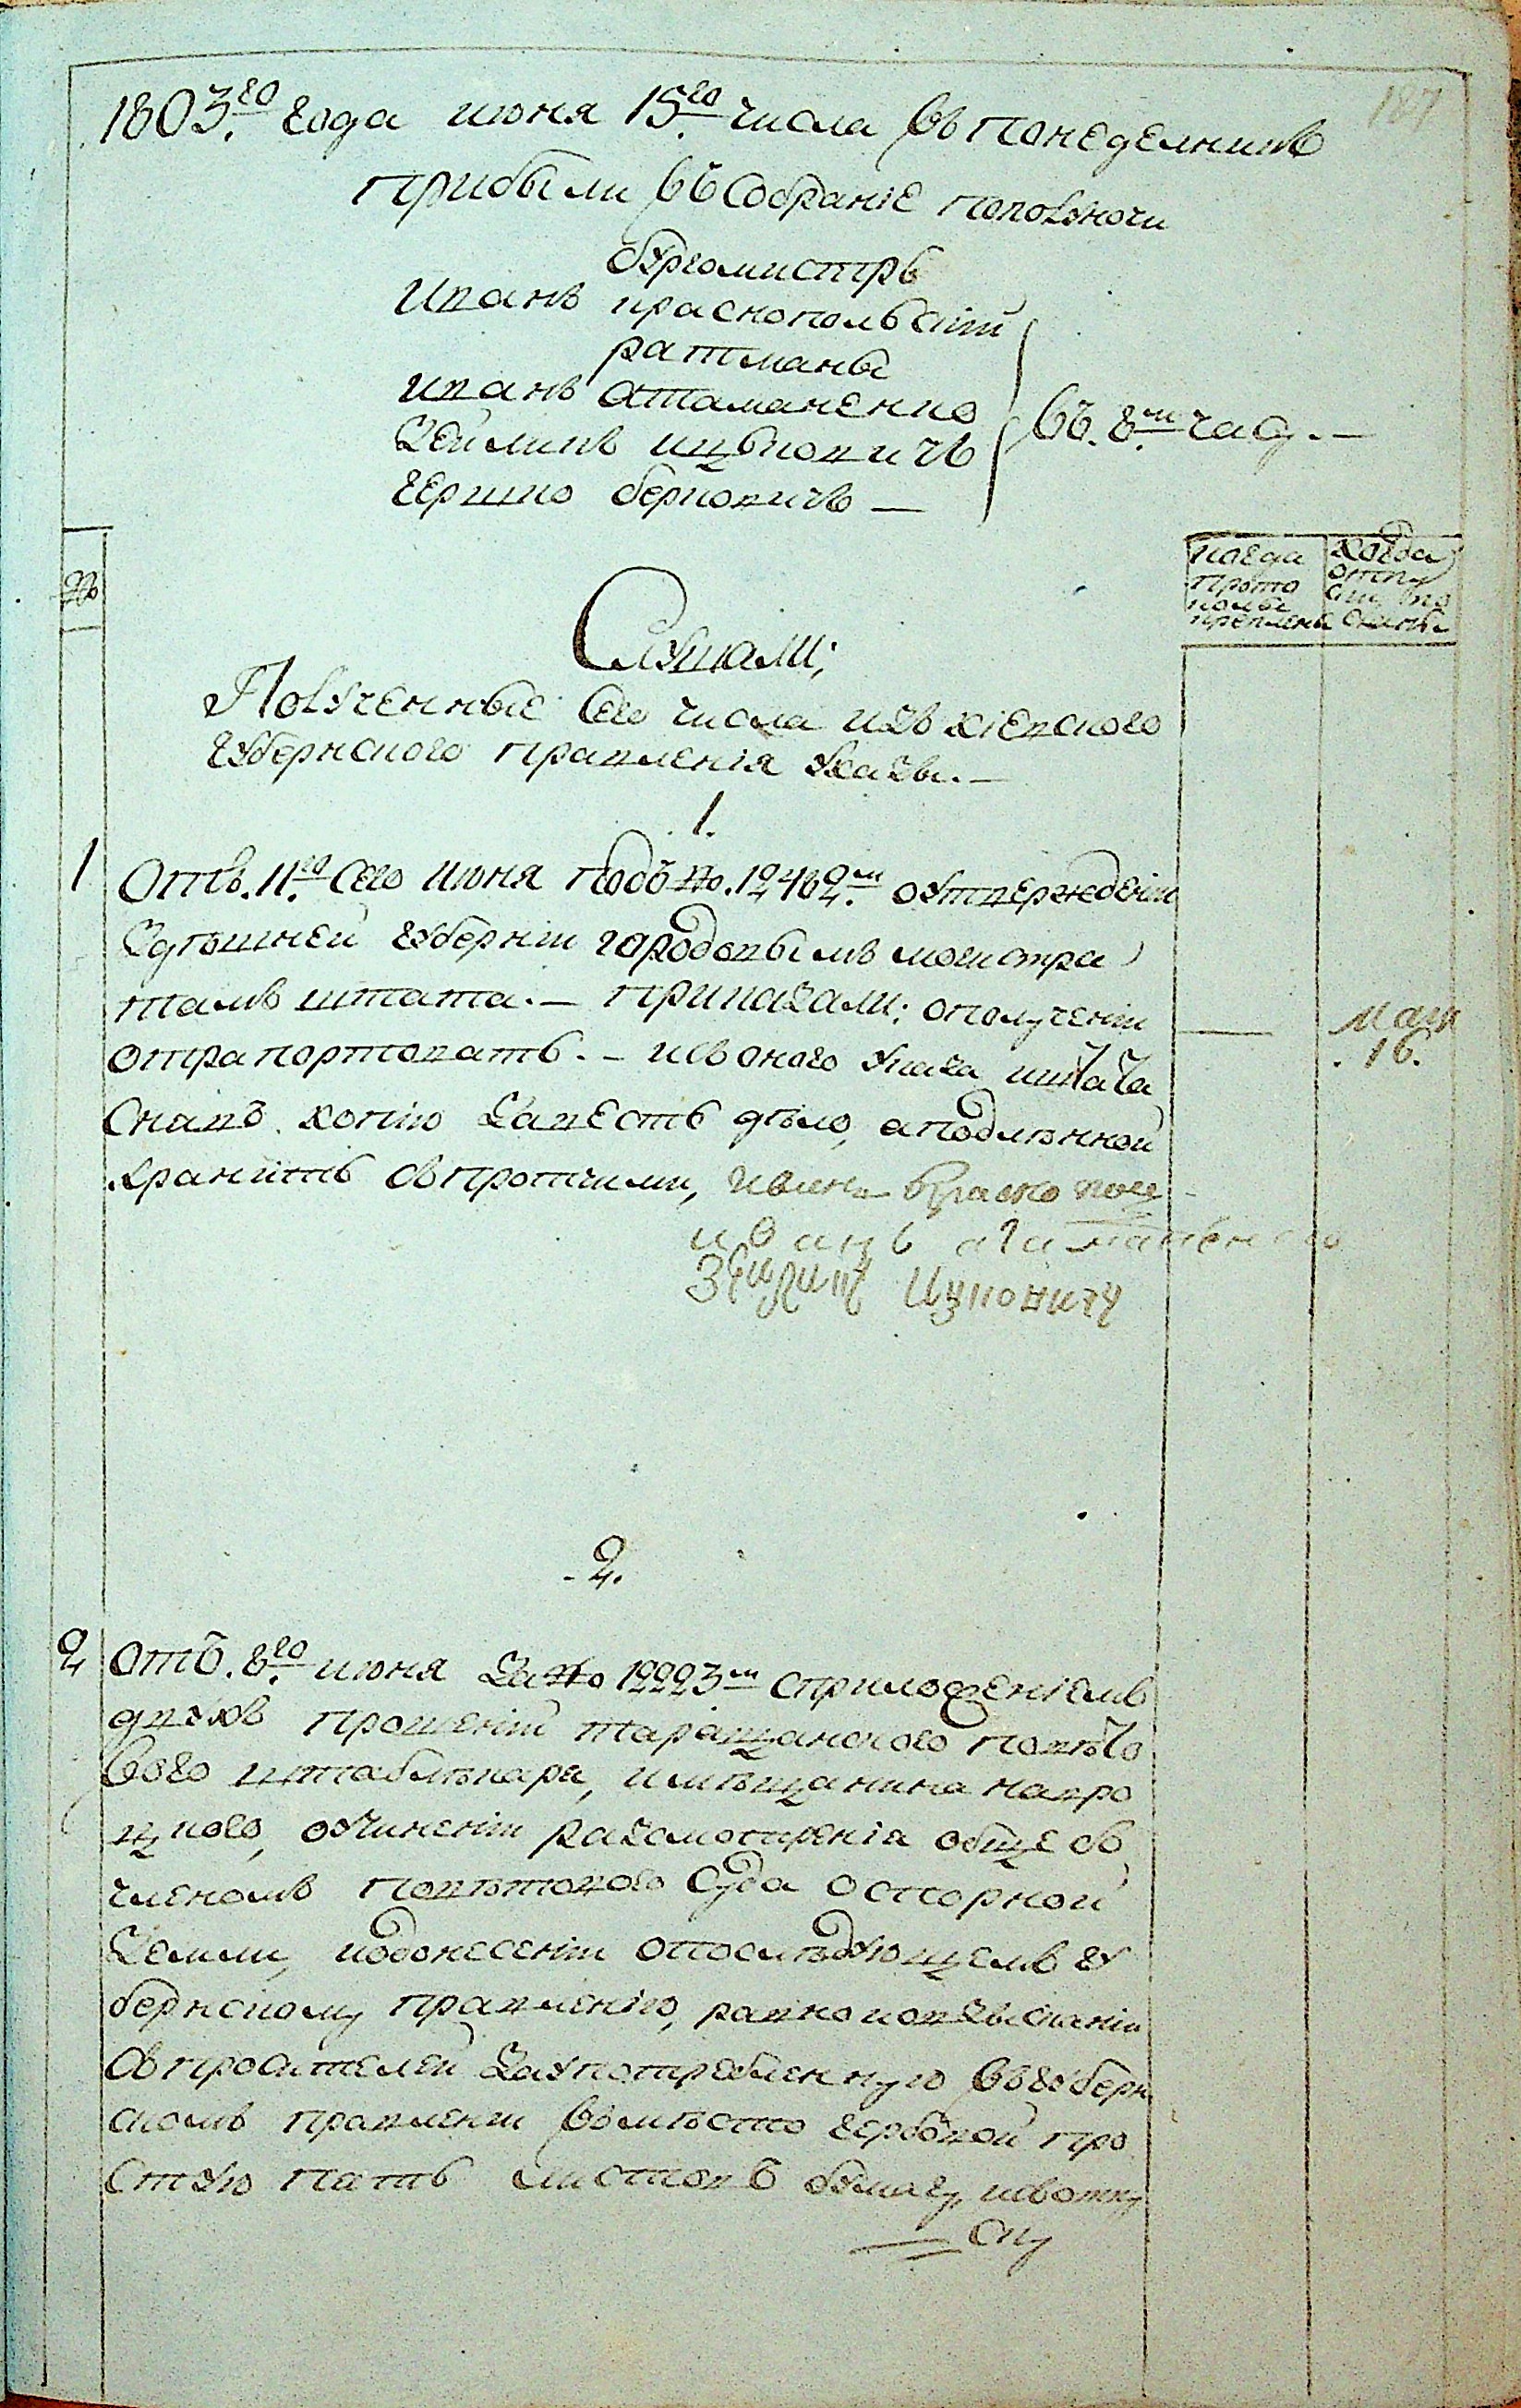 187
1803го года июня 15го числа въ понеделникъ
прибыли въ собранiе пополуночи
бургомистръ
Иванъ краснопольскiй
ратманы
иванъ Атаманенко
Зеймикъ ицковичъ
гершко берковичъ —
въ. 8м часу. —
№
когда прото колы креплены
когда отпу щены
Слушали;
Полученные сего числа изъ кiевского
губернского правленiя указы. —
1.
1
Отъ. 11го сего июня подъ №. 12462м о утвержденiи
Здѣшней губернiи городовымъ магистра
тамъ штата. — приказали; о полученiи
отрапортовать. — и съ оного указа и штата
снявъ копiю завесть дѣло, а подлѣнной
хранить съ протчими,
иванъ атаманенко
Зеилик Ицковичъ
маiя
16.
2.
2
отъ. 8го июня за № 12223м с приложенiемъ
двухъ прошенiй таращанского повѣто
вого штаблѣкаря, и мѣщанина навро
цкого, о учиненiи разсмотренiя обще съ
членомъ повѣтового суда о спорной
Земли, и о донесенiи о послѣдующемъ гу
бернскому правленiю, равно и о взысканiи
съ просителей за употребленную въ губерн
скомъ правленiи вмѣсто гербовой про
стую пять листовъ бумагу, и съ отпу
ску